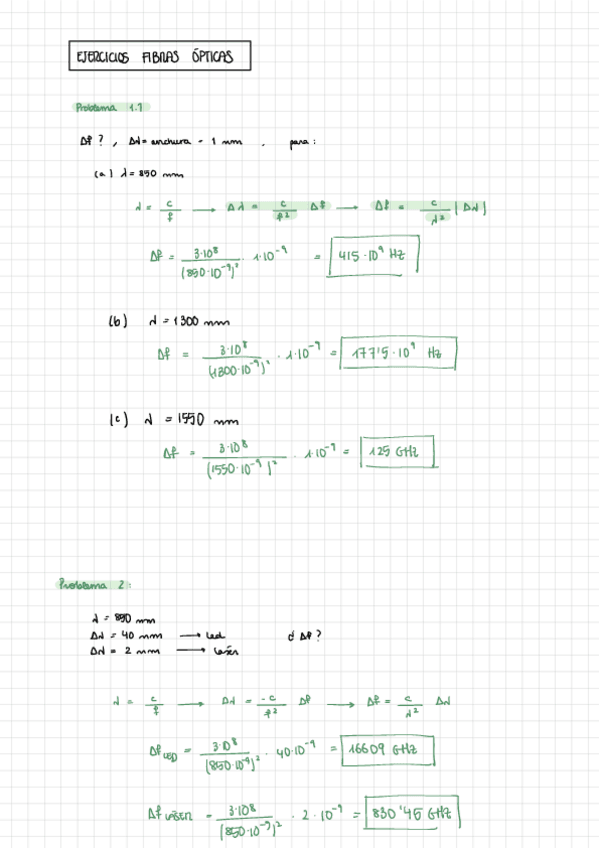 EJERCICIOS FIBRAS ÓPTICAS
Problema 1.1
Δf ? , Δλ = anchura = 1 nm , para :
(a) λ = 850 nm
λ = c/f → Δλ = c/f² Δf → Δf = c/λ² |Δλ|
Δf = 3·10⁸/(850·10⁻⁹)² · 1·10⁻⁹ = 415·10⁹ Hz
(b) λ = 1300 nm
Δf = 3·10⁸/(1300·10⁻⁹)² · 1·10⁻⁹ = 177'5·10⁹ Hz
(c) λ = 1550 nm
Δf = 3·10⁸/(1550·10⁻⁹)² · 1·10⁻⁹ = 125 GHz
Problema 2:
λ = 850 nm
Δλ = 40 nm → Led ¿ Δf ?
Δλ = 2 nm → Láser
λ = c/f → Δλ = -c/f² Δf → Δf = c/λ² Δλ
Δf LED = 3·10⁸/(850·10⁻⁹)² · 40·10⁻⁹ = 16609 GHz
Δf LÁSER = 3·10⁸/(850·10⁻⁹)² · 2·10⁻⁹ = 830'45 GHz